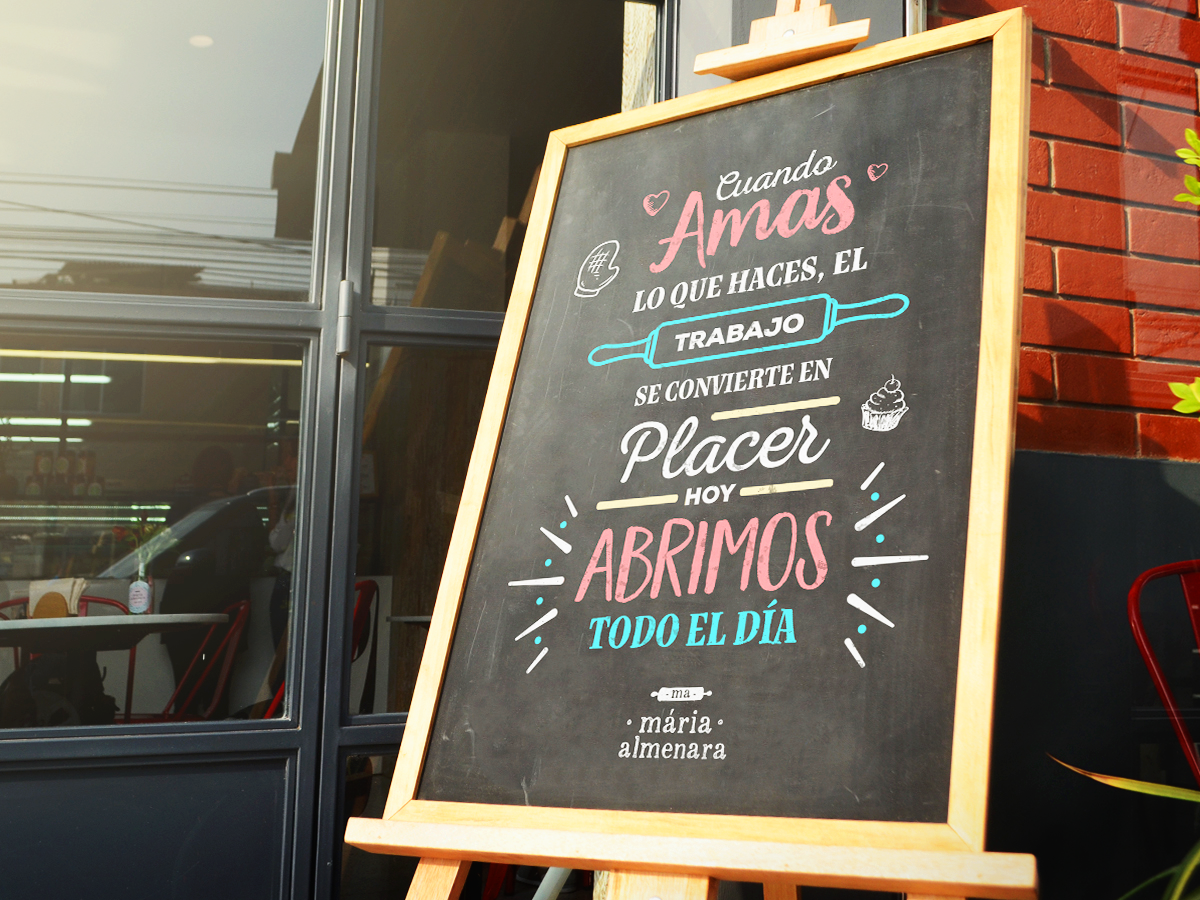 Cuando
Amas
LO QUE HACES, EL
TRABAJO
SE CONVIERTE EN
Placer
HOY
ABRIMOS
TODO EL DÍA
-ma-
·mária·
almenara